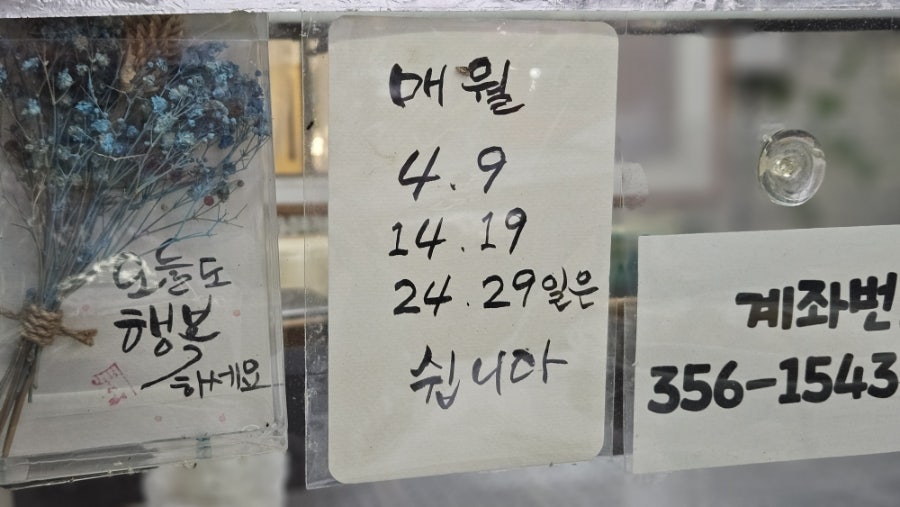 오늘도
행복
하세요
매월
4. 9
14. 19
24. 29일은
쉽니다
계좌번
356-1543